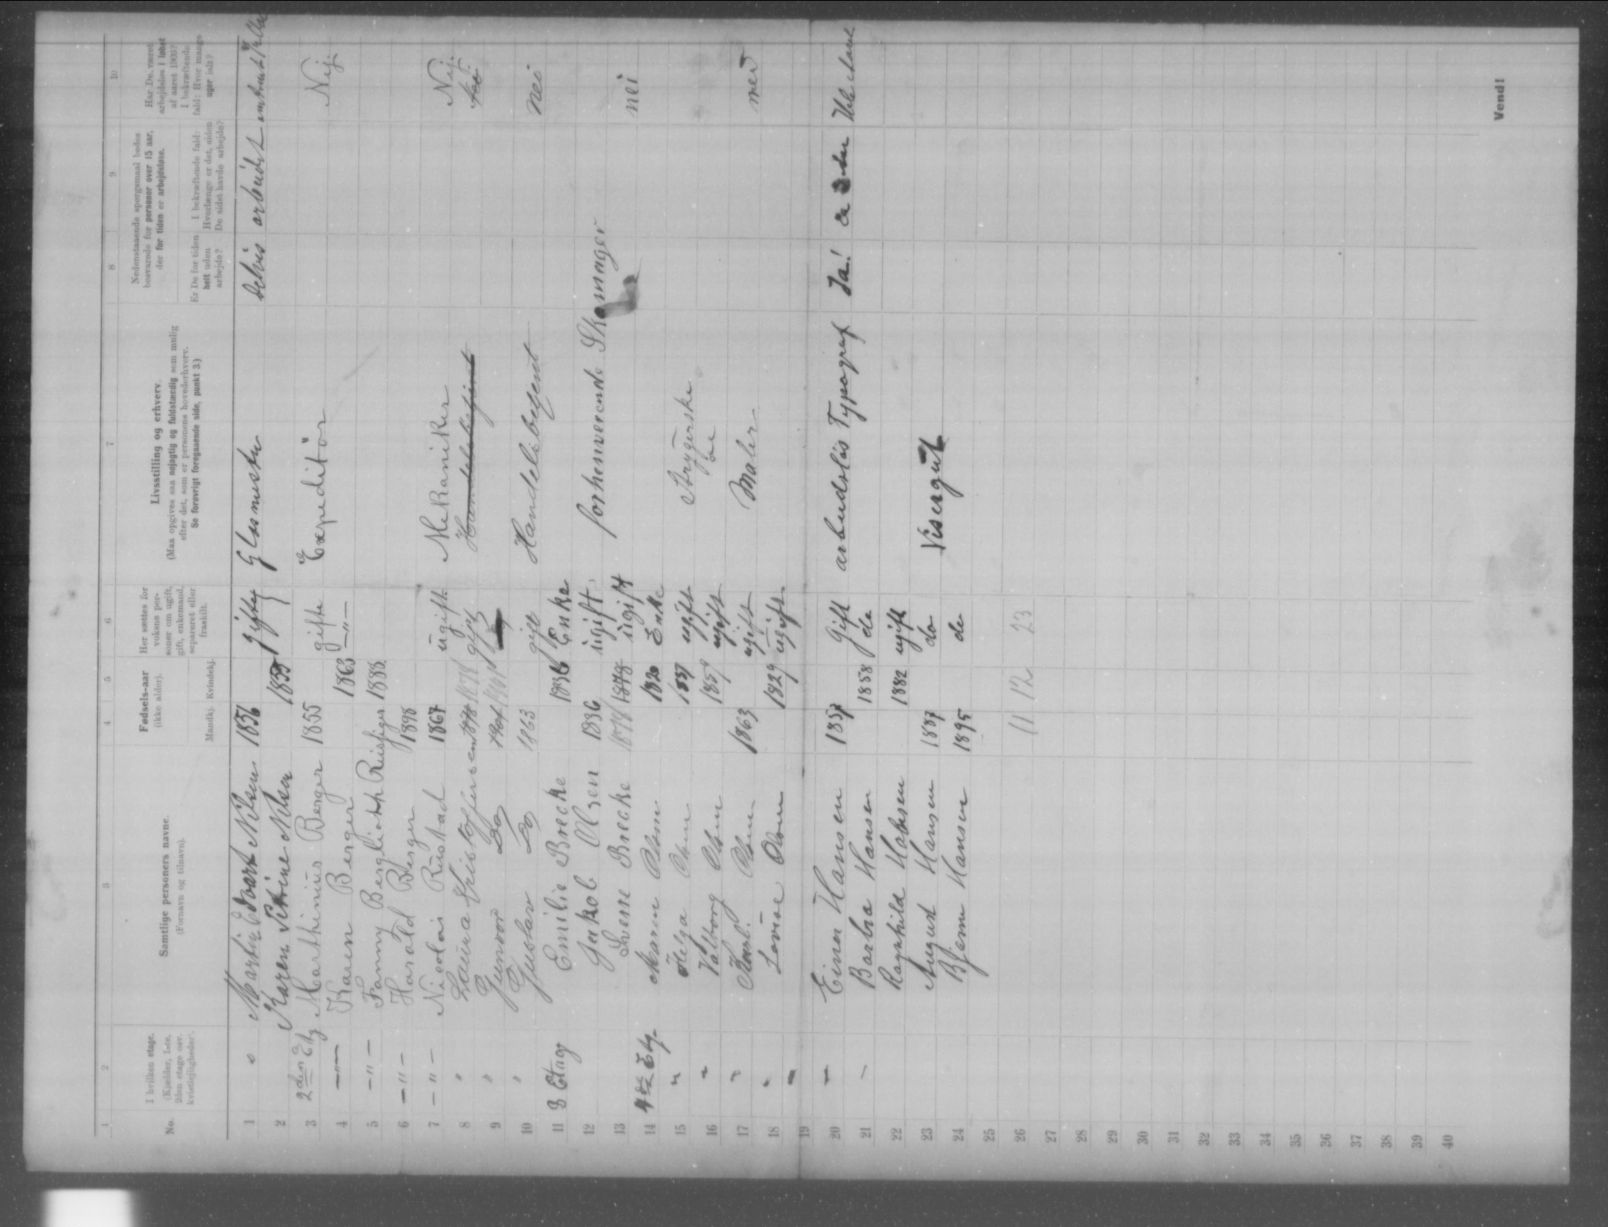 1 2 3 4 5 6 7 8 9 10
No.
I hvilken etage.
(Kjælder, 1ste,
2den etage osv.
kvistleiligheder).
Samtlige personers navne.
(Fornavn og tilnavn).
Fødsels-aar
(ikke alder).
Mandkj. Kvindekj.
Her sættes for
voksne per-
soner om ugift,
gift, enkemand,
separeret eller
fraskilt.
Livsstilling og erhverv.
(Maa opgives saa nøjagtig og fuldstændig som mulig
efter det, som er personens hovederhverv.
Se forøvrigt foregaaende side, punkt 3.)
Nedenstaaende spørgsmaal bedes
besvarede for personer over 15 aar,
der for tiden er arbejdsløse.
Er De for tiden
helt uden
arbejde?
I bekræftende fald:
Hvorlænge er det, siden
De sidst havde arbejde?
Har De været
arbejdsløs i løbet
af aaret 1905?
I bekræftende
fald: Hvor mange
uger ialt?
1 Martin Edvart Nilsen 1856 gift Glasmester Delvis arbeidet
2 Karen Nilsen 1855
3 2den Etg Marthinius Berger 1855 gifte Expeditør Nej
4 —"— Karen Berger 1863 —"—
5 —"— Fanny 1888
6 —"— Harald Berger 1898
7 —"— Nicolai Rustad 1867 ugift Mekaniker Nej
8 " Laura Kristoffersen 1878 gift
9 " Gunvor Do
10 " Gustav Do 1863 gift Handelsbetjent nei
11 3 Etag Emilie Brecke 1836 Enke
12 Jakob Olsen 1836 ugift forhenverende Skomager
13 Lene Brecke 1878 ugift nei
14 4de Etg. Maren Olsen 1830 Enke
15 " Helga Olsen 1857 ugift Strygerske
16 " Valborg Olsen 1859 ugift do
17 " Karl. Olsen 1863 ugift Maler nei
18 " Lovise Olsen 1829 ugift
19 "
20 — Einar Hansen 1857 Gift arbeidsløs Typograf Ja! ca 3
21 — Barbra Hansen 1858 do
22 Ragnhild Hansen 1882 ugift
23 August Hansen 1887 do Visergut
24 Bjarne Hansen 1895 do
25
26 11 12 23
27
28
29
30
31
32
33
34
35
36
37
38
39
40
Vend!